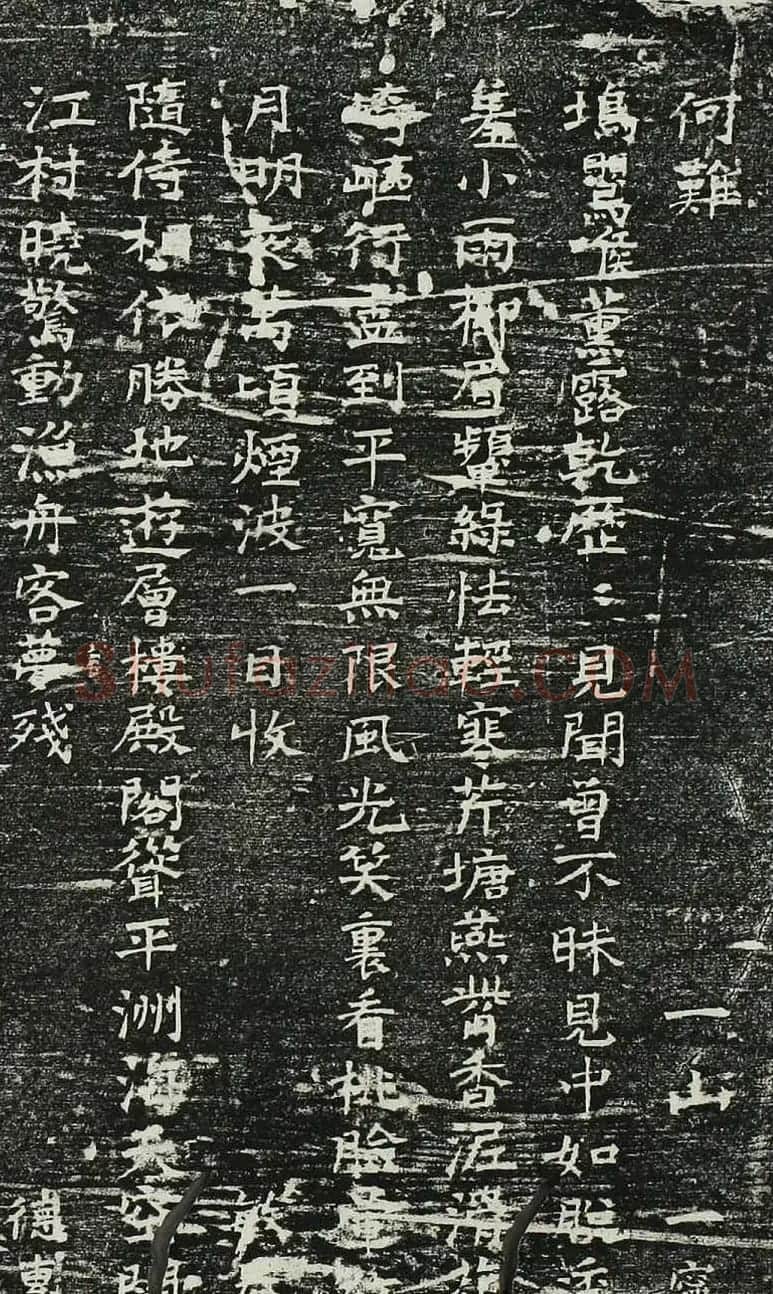 何難 一山 一
塢鸎催薰露乾歷〻見聞曾不昧見中如
羞小雨柳眉顰綠怯輕寒芹塘燕觜香泥滿
崎嶇行盡到平寬無限風光笑裏看桃臉暈
月明夜萬頃煙波一日收
隨侍相依勝地遊層樓殿閣聳平洲海天空闊
江村曉驚動漁舟客夢殘 德
Shufaziliao.COM